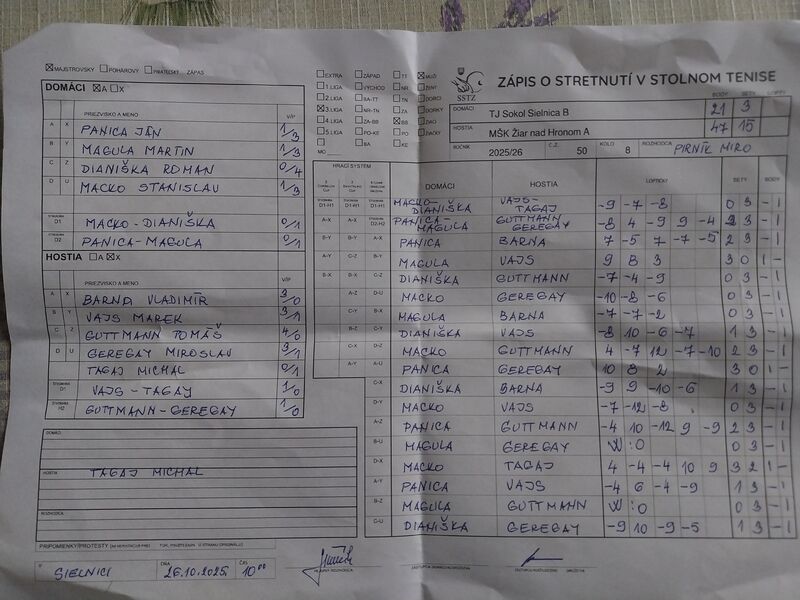 MAJSTROVSKÝ POHÁROVÝ PRIATEĽSKÝ ZÁPAS
DOMÁCI A X
PRIEZVISKO A MENO V/P
A X PANICA JÁN 1/3
B Y MAGULA MARTIN 1/3
C Z DIANIŠKA ROMAN 0/4
D U MACKO STANISLAV 1/3
D1 MACKO-DIANIŠKA 0/1
D2 PANICA-MAGULA 0/1
HOSTIA A X
PRIEZVISKO A MENO V/P
A X BARNA VLADIMÍR 3/0
B Y VAJS MAREK 3/1
C Z GUTTMANN TOMÁŠ 4/0
D U GEREGAY MIROSLAV 3/1
TAGAJ MICHAL 0/1
D1 VAJS-TAGAY 1/0
H2 GUTTMANN-GEREGAY 1/0
DOMÁCI
HOSTIA
TAGAJ MICHAL
ROZHODCA
PRIPOMIENKY/PROTESTY
V SIELNICI DŇA 26.10.2025 ČAS 10 00
EXTRA ZÁPAD TT MUŽI
1. LIGA VÝCHOD NR ŽENY
2. LIGA BA-TT TN DORCI
3. LIGA NR-TN ZA DORKY
4. LIGA ZA-BB BB ŽIACI
5. LIGA PO-KE PO ŽIAČKY
BA KE
MO
SSTZ
ZÁPIS O STRETNUTÍ V STOLNOM TENISE
BODY SETY LOPTY
DOMÁCI TJ Sokol Sielnica B 21 3
HOSTIA MŠK Žiar nad Hronom A 47 15
ROČNÍK 2025/26 Č.Z. 50 KOLO 8 ROZHODCA PIRNÍK MIRO
HRACÍ SYSTÉM DOMÁCI HOSTIA LOPTIČKY SETY BODY
MACKO-DIANIŠKA VAJS-TAGAJ -9 -7 -8 0 3 - 1
PANICA-MAGULA GUTTMANN GEREGAY -8 4 -9 9 -4 2 3 - 1
PANICA BARNA 7 -5 7 -7 -5 2 3 - 1
MAGULA VAJS 9 8 3 3 0 1 -
DIANIŠKA GUTTMANN -7 -4 -9 0 3 - 1
MACKO GEREGAY -10 -8 -6 0 3 - 1
MAGULA BARNA -7 -7 -2 0 3 - 1
DIANIŠKA VAJS -8 10 -6 -7 1 3 - 1
MACKO GUTTMANN 4 -7 12 -7 -10 2 3 - 1
PANICA GEREGAY 10 8 2 3 0 1 -
C-X DIANIŠKA BARNA -9 9 -10 -6 1 3 - 1
D-Y MACKO VAJS -7 -12 -8 0 3 - 1
A-Z PANICA GUTTMANN -4 10 -12 9 -9 2 3 - 1
B-U MAGULA GEREGAY W:0 0 3 - 1
D-X MACKO TAGAJ 4 -4 -4 10 9 3 2 1 -
A-Y PANICA VAJS -4 6 -4 -9 1 3 - 1
B-Z MAGULA GUTTMANN W:0 0 3 - 1
C-U DIANIŠKA GEREGAY -9 10 -9 -5 1 3 - 1